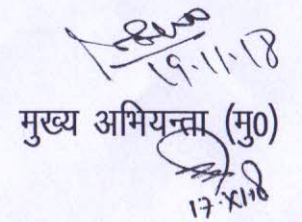 19.11.18
मुख्य अभियन्ता (मु0)
17.XI.18